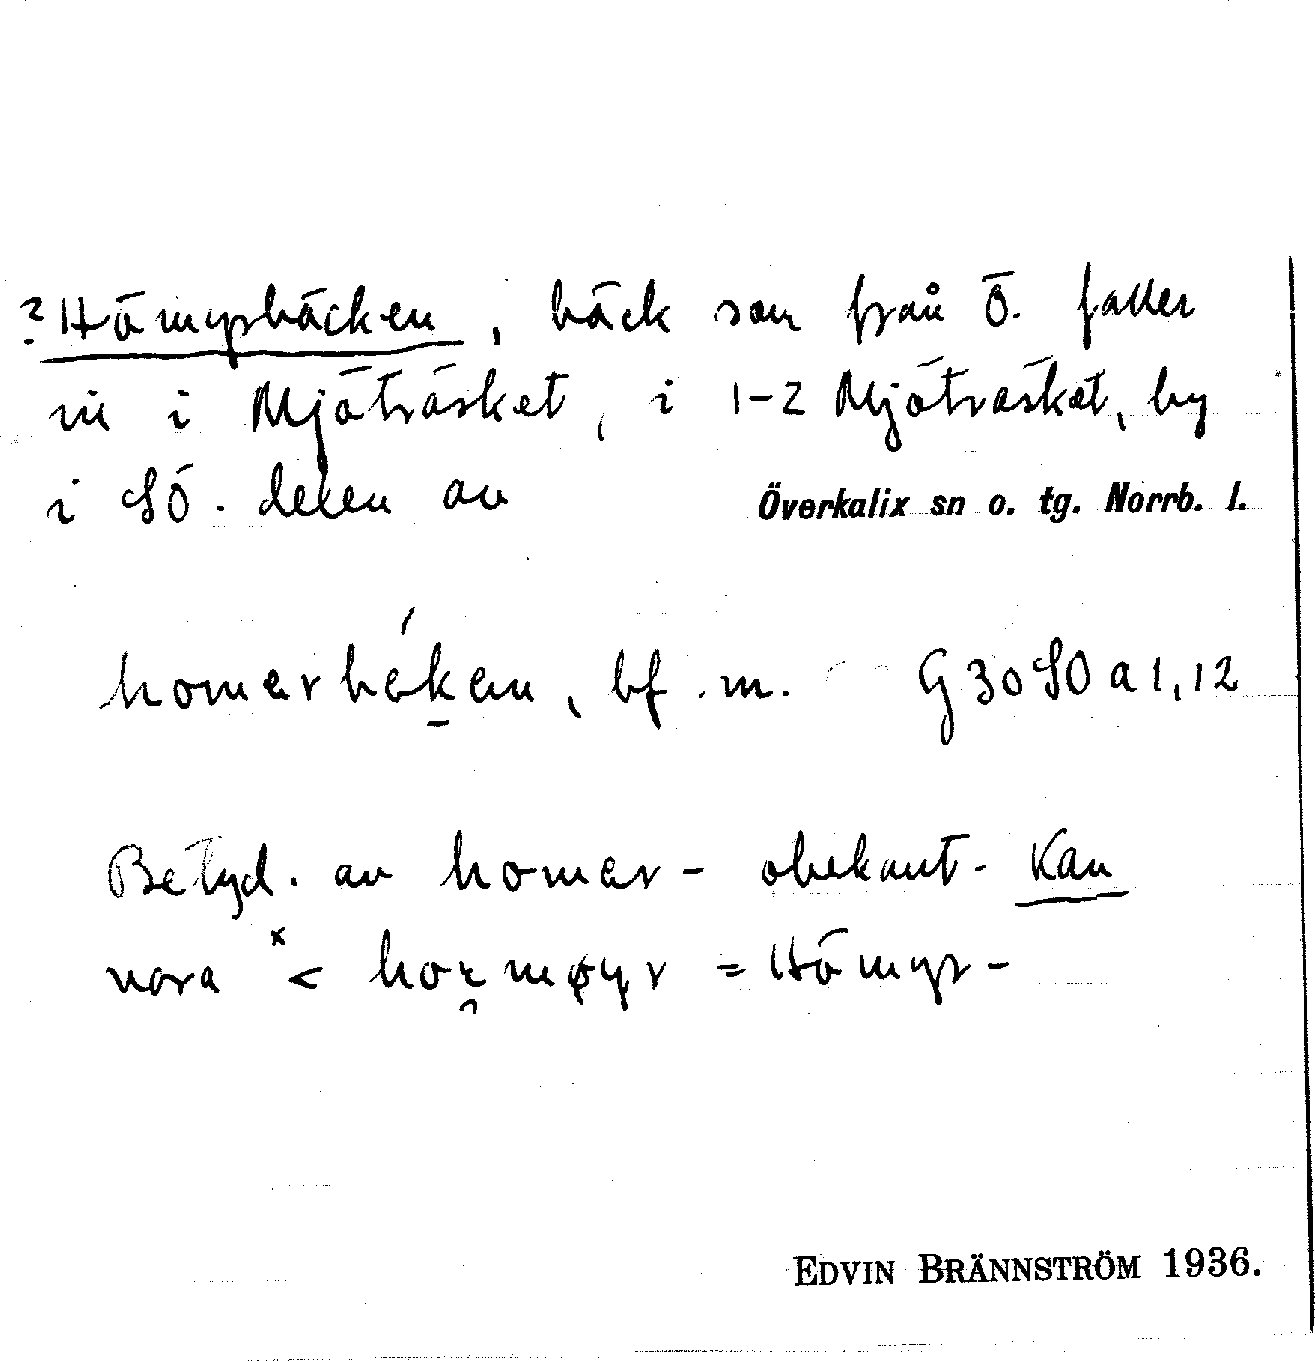 ? Hömyrbäcken, bäck som från Ö. faller
in i Mjöträsket, i 1-2 Mjöträsket, by
i SÖ. delen av Överkalix sn o. tg. Norrb. l.
homerbéken, bf. m. G 30 SO a 1, 12
Betyd. av homer- obekant. Kan
vara < *hoymøyr = Hömyr-
EDVIN BRÄNNSTRÖM 1936.